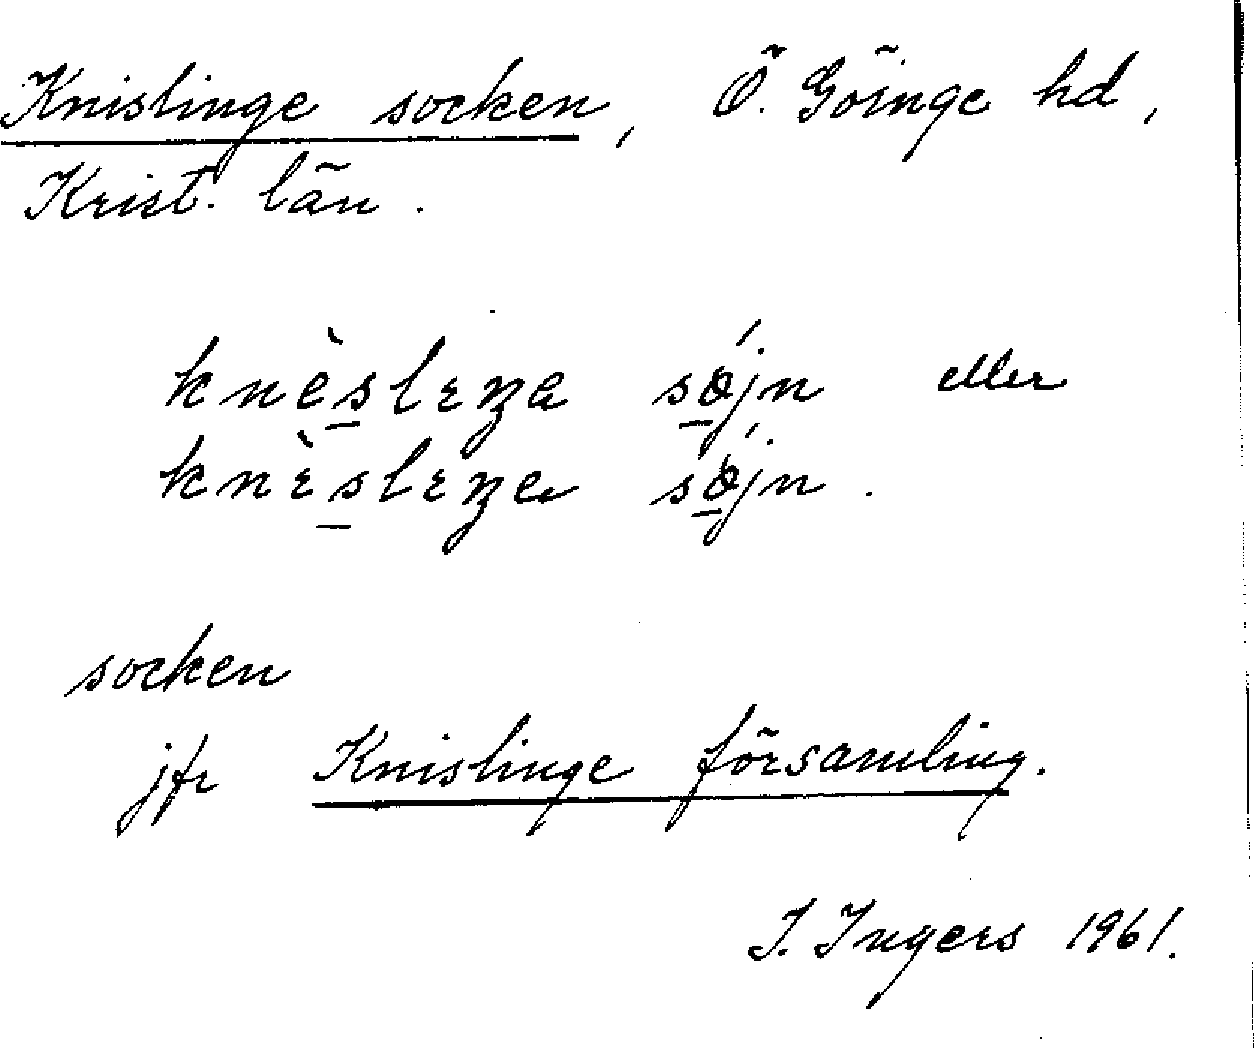 Knislinge socken, Ö. Göinge hd,
Krist. län.
knèslɪŋe só̱jn eller
knɪ̀slɪŋe só̱jn.
socken
jfr Knislinge församling.
I. Ingers 1961.